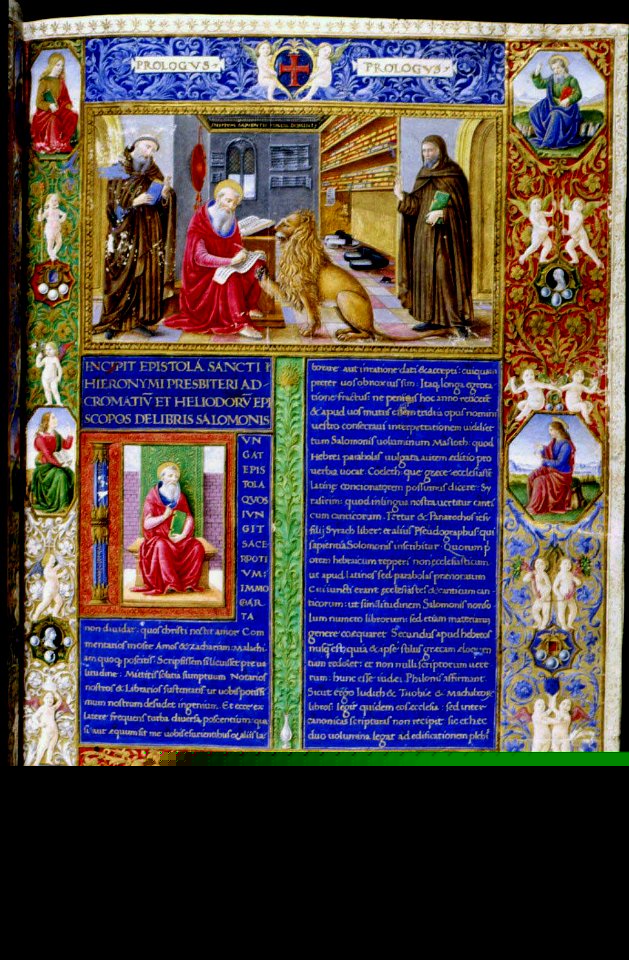 PROLOGVS
PROLOGVS
INCIPIT EPISTOLA SANCTI
HIERONYMI PRESBITERI AD
CROMATIV̅ ET HELIODORV̅ EPI
SCOPOS DE LIBRIS SALOMONIS
VN
GAT
EPIS
TOLA
QUOS
IVN
GIT
SACE
RDOTI
VM:
IMMO
CAR
TA
non diuidat: quos christi nectit amor Com
mentarios in osee Amos & Zachariam Malachi
am quoq poscitis: Scripsissem si licuisset pre ua
litudine: Mittitis solatia sumptuum Notarios
nostros & Librarios sustentatis ut uobis potissi
mum nostrum desudet ingenium. Et ecce ex
latere frequens turba diuersa poscentium: qua
si aut equum sit me uobis esurientibus aliis la
borare: aut in ratione dati & accepti: cuiquam
preter uos obnoxius sim: Itaq longa egrota
tione fractus ne penitus hoc anno reticerem
& apud uos mutus essem tridui opus nomini
uestro consecraui interpretationem uidelicet
trium Salomonis uoluminum Masloth: quod
Hebrei parabolas uulgata autem editio pro
uerbia uocat. Coeleth: que grece ecclesiasten
latine concionatorem possumus dicere: Sy
rasirim: quod in lingua nostra uertitur canti
cum canticorum: Fertur & Panarethos iesu
filii Syrach liber: et alius Pseudographus qui
sapientia Salomonis inscribitur Quorum p
orem hebraicum repperi non ecclesiasticum
ut apud Latinos sed parabolas prenotatum
Cui iuncti erant ecclesiastes & canticum can
ticorum: ut similitudinem Salomonis non so
lum numero librorum: sed etiam materiarum
genere coequaret Secundus apud hebreos
nusq est: quia & ipse stilus grecam eloquen
tiam redolet: et non nulli scriptorum uete
rum: hunc esse iudei Philonis affirmant.
Sicut ergo Iudith & Tuobie & Machabeorum
libros legit quidem eos ecclesia: sed inter
canonicas scripturas non recipit sic et hec
duo uolumina legat ad edificationem plebi